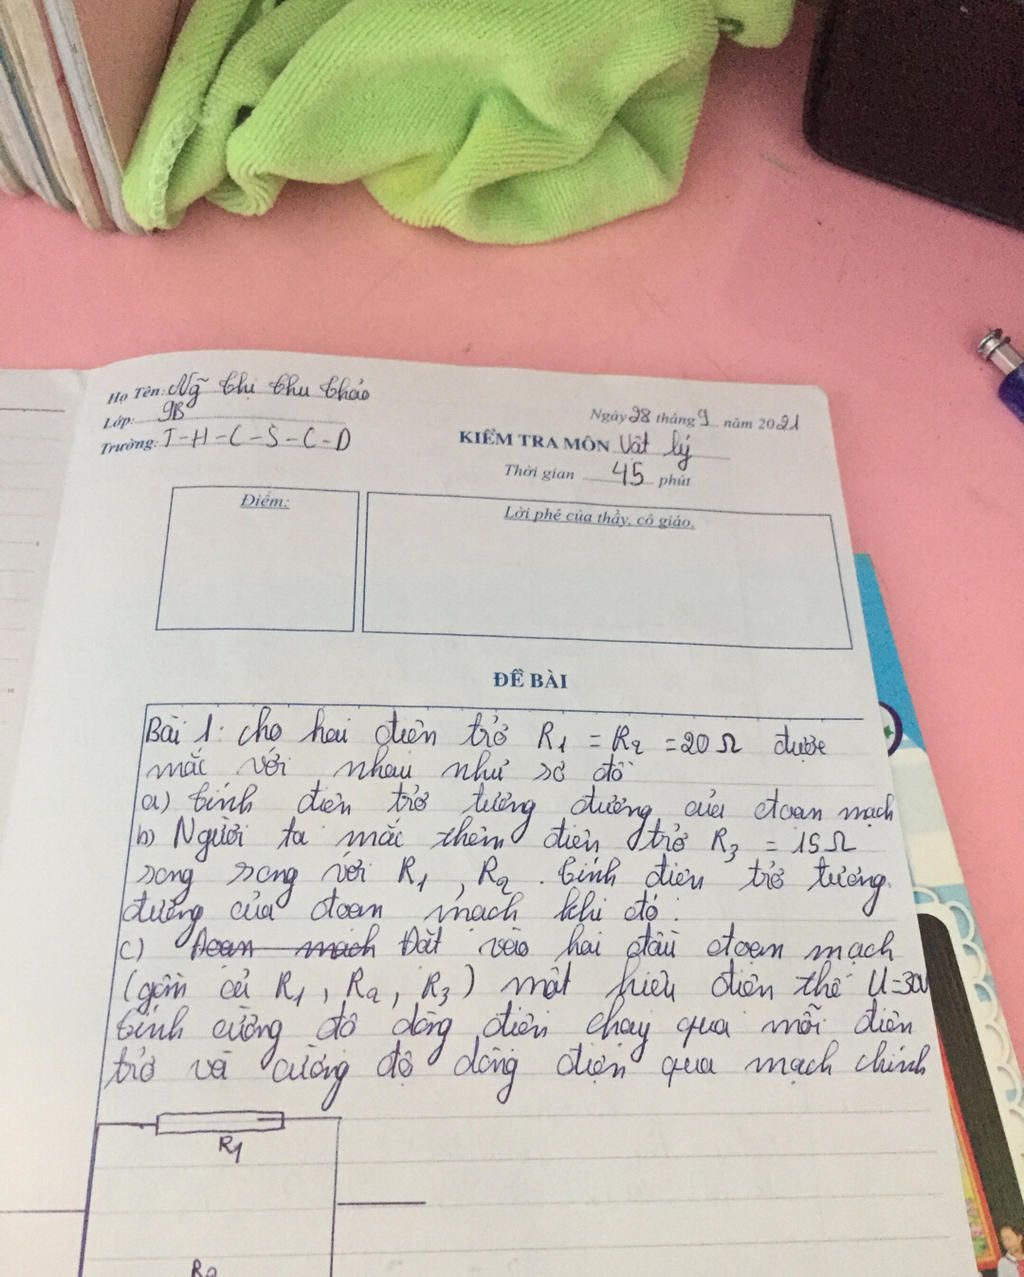 Họ Tên: Ng̃ Thị Thu Thảo
Lớp: 9B
Trường: T-H-C-S-C-D
Ngày 28 tháng 9 năm 2021
KIỂM TRA MÔN Vật lý
Thời gian 45 phút
Điểm:
Lời phê của thầy, cô giáo.
ĐỀ BÀI
Bài 1: cho hai điện trở R1 = R2 = 20 Ω được
mắc với nhau như sơ đồ
a) tính điện trở tương đương của đoạn mạch
b) Người ta mắc thêm điện trở R3 = 15 Ω
song song với R1, R2. tính điện trở tương
đương của đoạn mạch khi đó.
c) Đoạn mạch Đặt vào hai đầu đoạn mạch
(gồm cả R1, R2, R3) một hiệu điện thế U=30V
tính cường độ dòng điện chạy qua mỗi điện
trở và cường độ dòng điện qua mạch chính
R1
R2